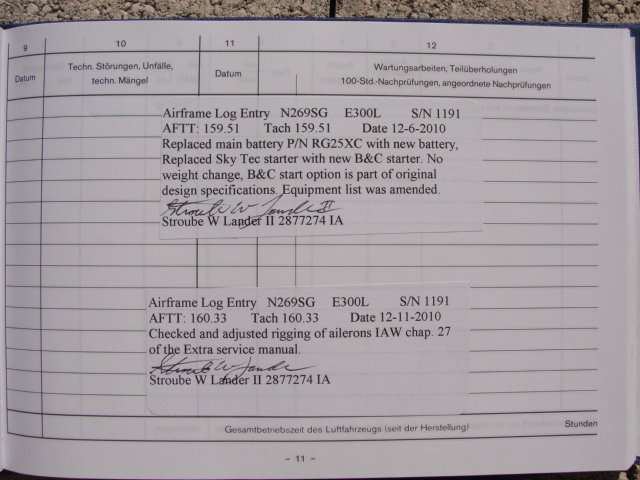 9 10 11 12
Datum Techn. Störungen, Unfälle, techn. Mängel Datum Wartungsarbeiten, Teilüberholungen
100-Std.-Nachprüfungen, angeordnete Nachprüfungen
Airframe Log Entry N269SG E300L S/N 1191
AFTT: 159.51 Tach 159.51 Date 12-6-2010
Replaced main battery P/N RG25XC with new battery,
Replaced Sky Tec starter with new B&C starter. No
weight change, B&C start option is part of original
design specifications. Equipment list was amended.
Stroube W Lander II
Stroube W Lander II 2877274 IA
Airframe Log Entry N269SG E300L S/N 1191
AFTT: 160.33 Tach 160.33 Date 12-11-2010
Checked and adjusted rigging of ailerons IAW chap. 27
of the Extra service manual.
Stroube W Lander
Stroube W Lander II 2877274 IA
Gesamtbetriebszeit des Luftfahrzeugs (seit der Herstellung) Stunden
- 11 -